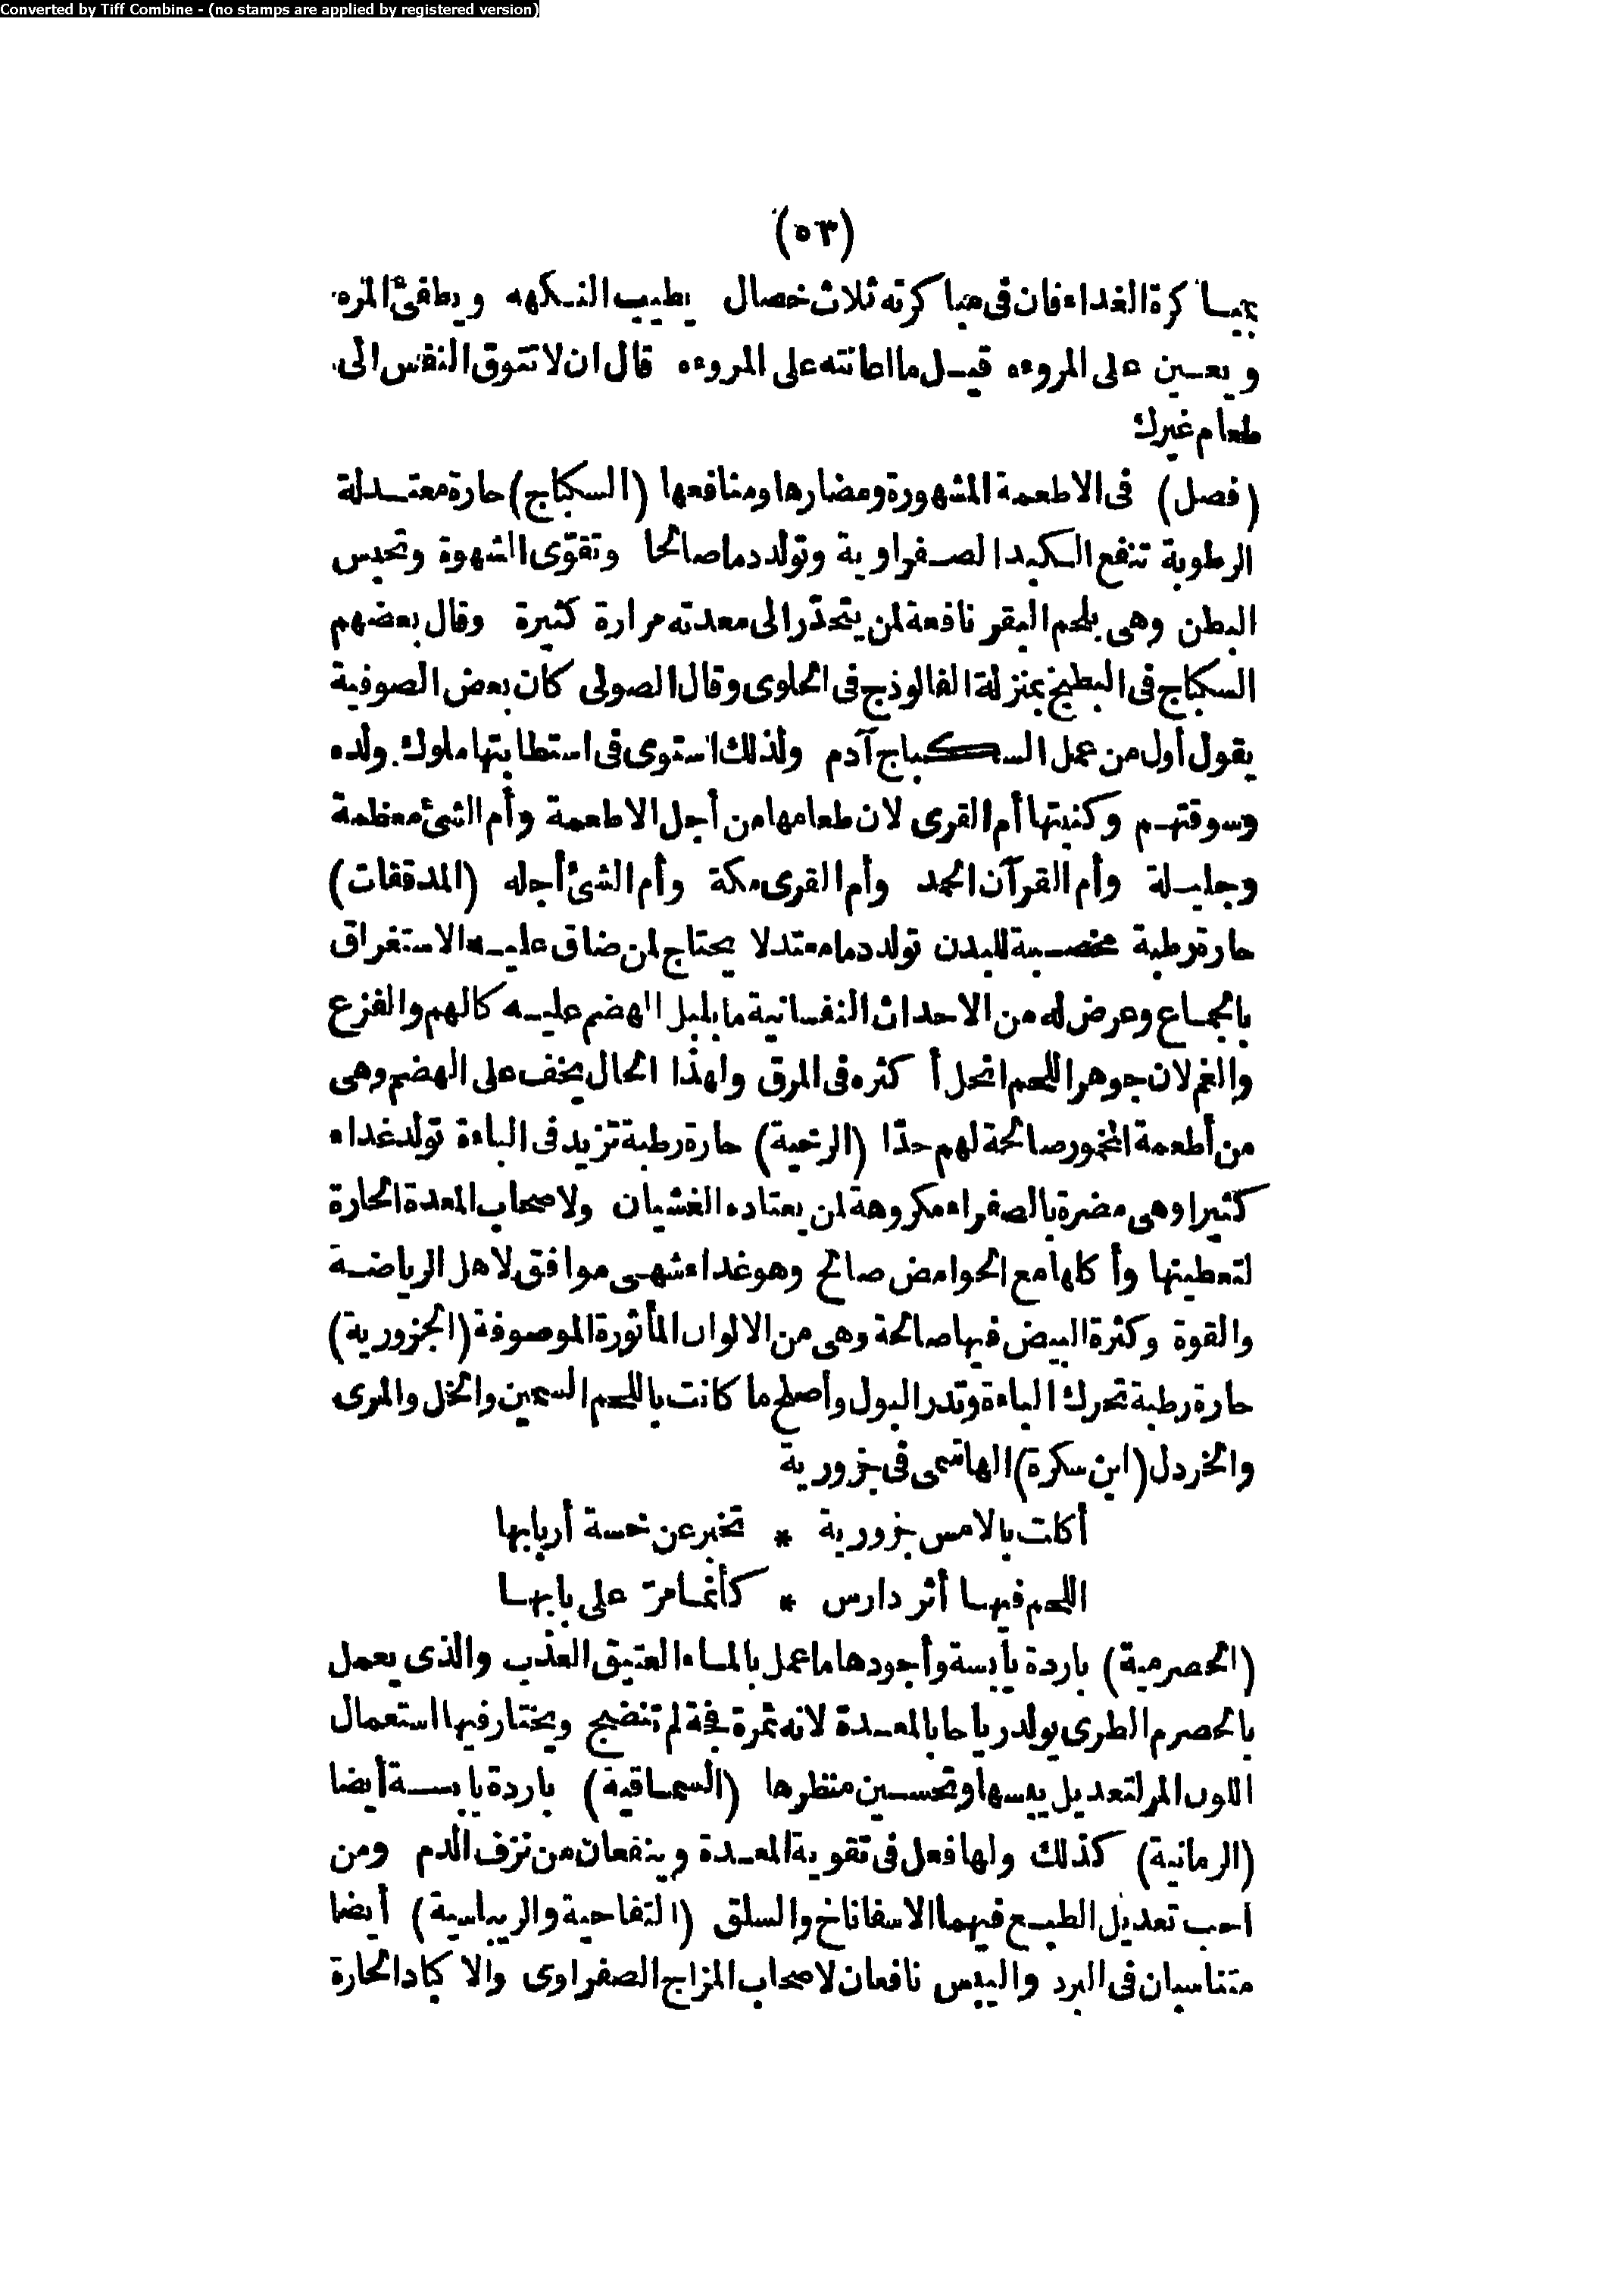 Converted by Tiff Combine - (no stamps are applied by registered version)
(٥٣)
بمباكرة الغداء فان فى مباكرته ثلاث خصال يطيب النكهه ويطفئ المره
ويعين على المروءه قيل ما اعانته على المروءه قال ان لا تتوق النفس الى
طعام غيرك
(فصل) فى الاطعمة المشهورة ومضارها ومنافعها (السكباج) حارة معتدلة
الرطوبة تنفع الكبد الصفراوية وتولد دما صالحا وتقوّى الشهوة وتحبس
البطن وهى بلحم البقر نافعة لمن يتحدّر الى معدته مرارة كثيرة وقال بعضهم
السكباج فى البطيخ بمنزلة الفالوذج فى الحلوى وقال الصولى كان بعض الصوفية
يقول أول من عمل السكباج آدم ولذلك استوى فى استطابتها ملوك ولده
وسوقتهم وكنيتها أم القرى لان طعامها من أجل الاطعمة وأم الشئ معظمة
وجليلة وأم القرآن الحمد وأم القرى مكة وأم الشئ أجله (المدققات)
حارة رطبة مخصبة للبدن تولد دما معتدلا يحتاج لمن ضاق عليه الاستغراق
بالجماع وعرض له من الاحداث النفسانية ما يلبل الهضم عليه كالهم والفزع
والغم لان جوهر اللحم انحل أكثره فى المرق ولهذا الحال يخف على الهضم وهى
من أطعمة المخمور صالحة لهم جدّا (الرخية) حارة رطبة تزيد فى الباءة تولد غداء
كثيرا وهى مضرة بالصفراء مكروهة لمن يعتاده الغشيان ولاصحاب المعدة الحارة
لتعطيتها وأكلها مع الحوامض صالح وهو غداء شهى موافق لاهل الرياضة
والقوة وكثرة البيض فيها صالحة وهى من الالوان المأثورة الموصوفة (الجزورية)
حارة رطبة تحرك الباءة وتدر البول وأصلح ما كانت باللحم السمين والخل والمرى
والخردل (ابن سكرة) الهاشمى فى جزورية
أكلت بالامس جزورية * تخبر عن خسة أربابها
اللحم فيها أثر دارس * كأنما مرّ على بابها
(الحصرمية) باردة يابسة وأجودها ما عمل بالماء العتيق العذب والذى يعمل
بالحصرم الطرى يولد رياحا بالمعدة لانه ثمرة فجة لم تنضج ويختار فيها استعمال
اللون المر لتعديل يبسها وتحسين منظرها (السماقية) باردة يابسة أيضا
(الرمانية) كذلك ولها فعل فى تقوية المعدة وينفعان من نزف الدم ومن
احب تعديل الطبع فيهما الاسفاناخ والسلق (التفاحية والريباسية) أيضا
متناسبان فى البرد واليبس نافعان لاصحاب المزاج الصفراوى والاكباد الحارة